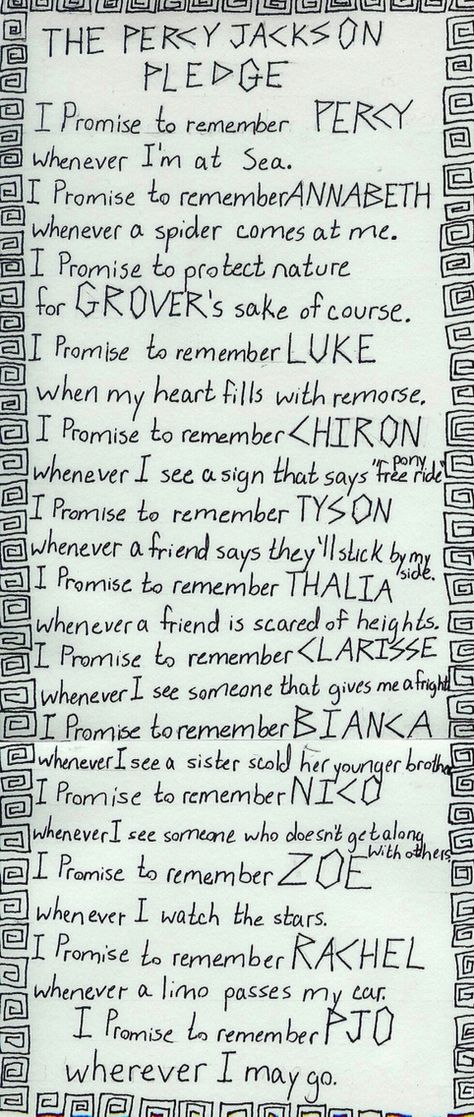 THE PERCY JACKSON
PLEDGE
I Promise to remember PERCY
whenever I'm at Sea.
I Promise to remember ANNABETH
whenever a spider comes at me.
I Promise to protect nature
for GROVER's sake of course.
I Promise to remember LUKE
when my heart fills with remorse.
I Promise to remember CHIRON
whenever I see a sign that says "free pony ride"
I Promise to remember TYSON
whenever a friend says they'll stick by my side.
I Promise to remember THALIA
whenever a friend is scared of heights.
I Promise to remember CLARISSE
whenever I see someone that gives me a fright
I Promise to remember BIANCA
whenever I see a sister scold her younger brother
I Promise to remember NICO
whenever I see someone who doesn't get along with others
I Promise to remember ZOE
whenever I watch the stars.
I Promise to remember RACHEL
whenever a limo passes my car.
I Promise to remember PJO
wherever I may go.